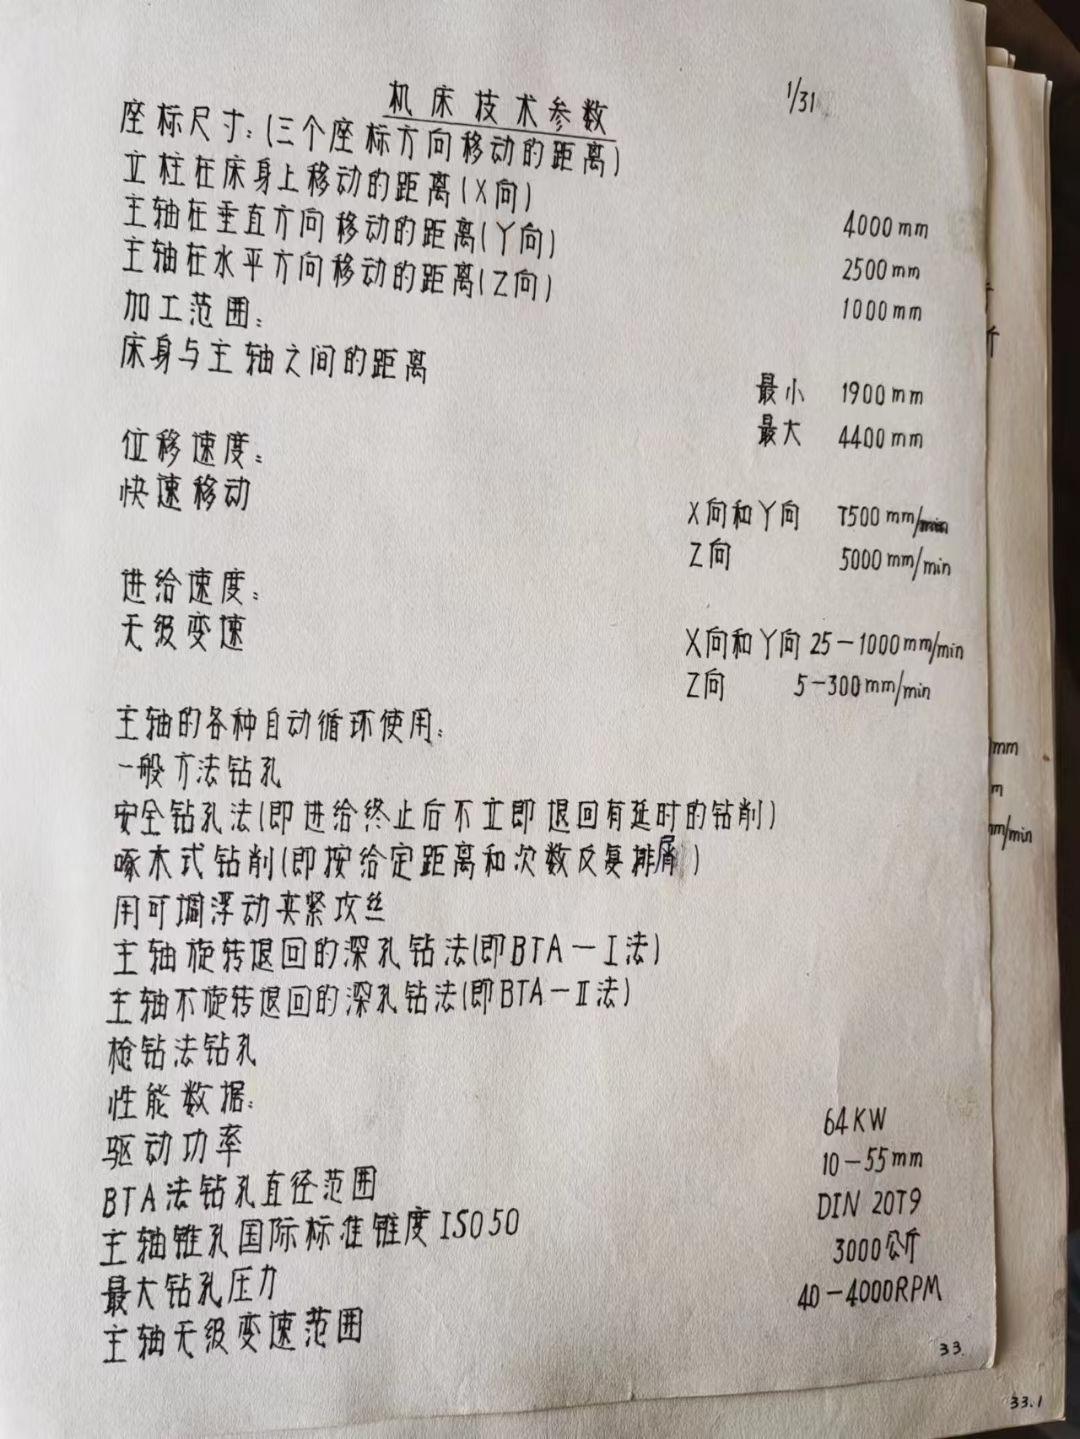 机床技术参数 1/31
座标尺寸:(三个座标方向移动的距离)
立柱在床身上移动的距离(X向) 4000mm
主轴在垂直方向移动的距离(Y向) 2500mm
主轴在水平方向移动的距离(Z向) 1000mm
加工范围:
床身与主轴之间的距离 最小 1900mm
最大 4400mm
位移速度:
快速移动 X向和Y向 7500mm/min
Z向 5000mm/min
进给速度:
无级变速 X向和Y向 25-1000mm/min
Z向 5-300mm/min
主轴的各种自动循环使用:
一般方法钻孔
安全钻孔法(即进给终止后不立即退回有延时的钻削)
啄木式钻削(即按给定距离和次数反复排屑)
用可调浮动夹紧攻丝
主轴旋转退回的深孔钻法(即BTA-I法)
主轴不旋转退回的深孔钻法(即BTA-II法)
枪钻法钻孔
性能数据:
驱动功率 64KW
BTA法钻孔直径范围 10-55mm
主轴锥孔国际标准锥度ISO50 DIN 20T9
最大钻孔压力 3000公斤
主轴无级变速范围 40-4000RPM
33
斤
mm
m
m/min
33.1